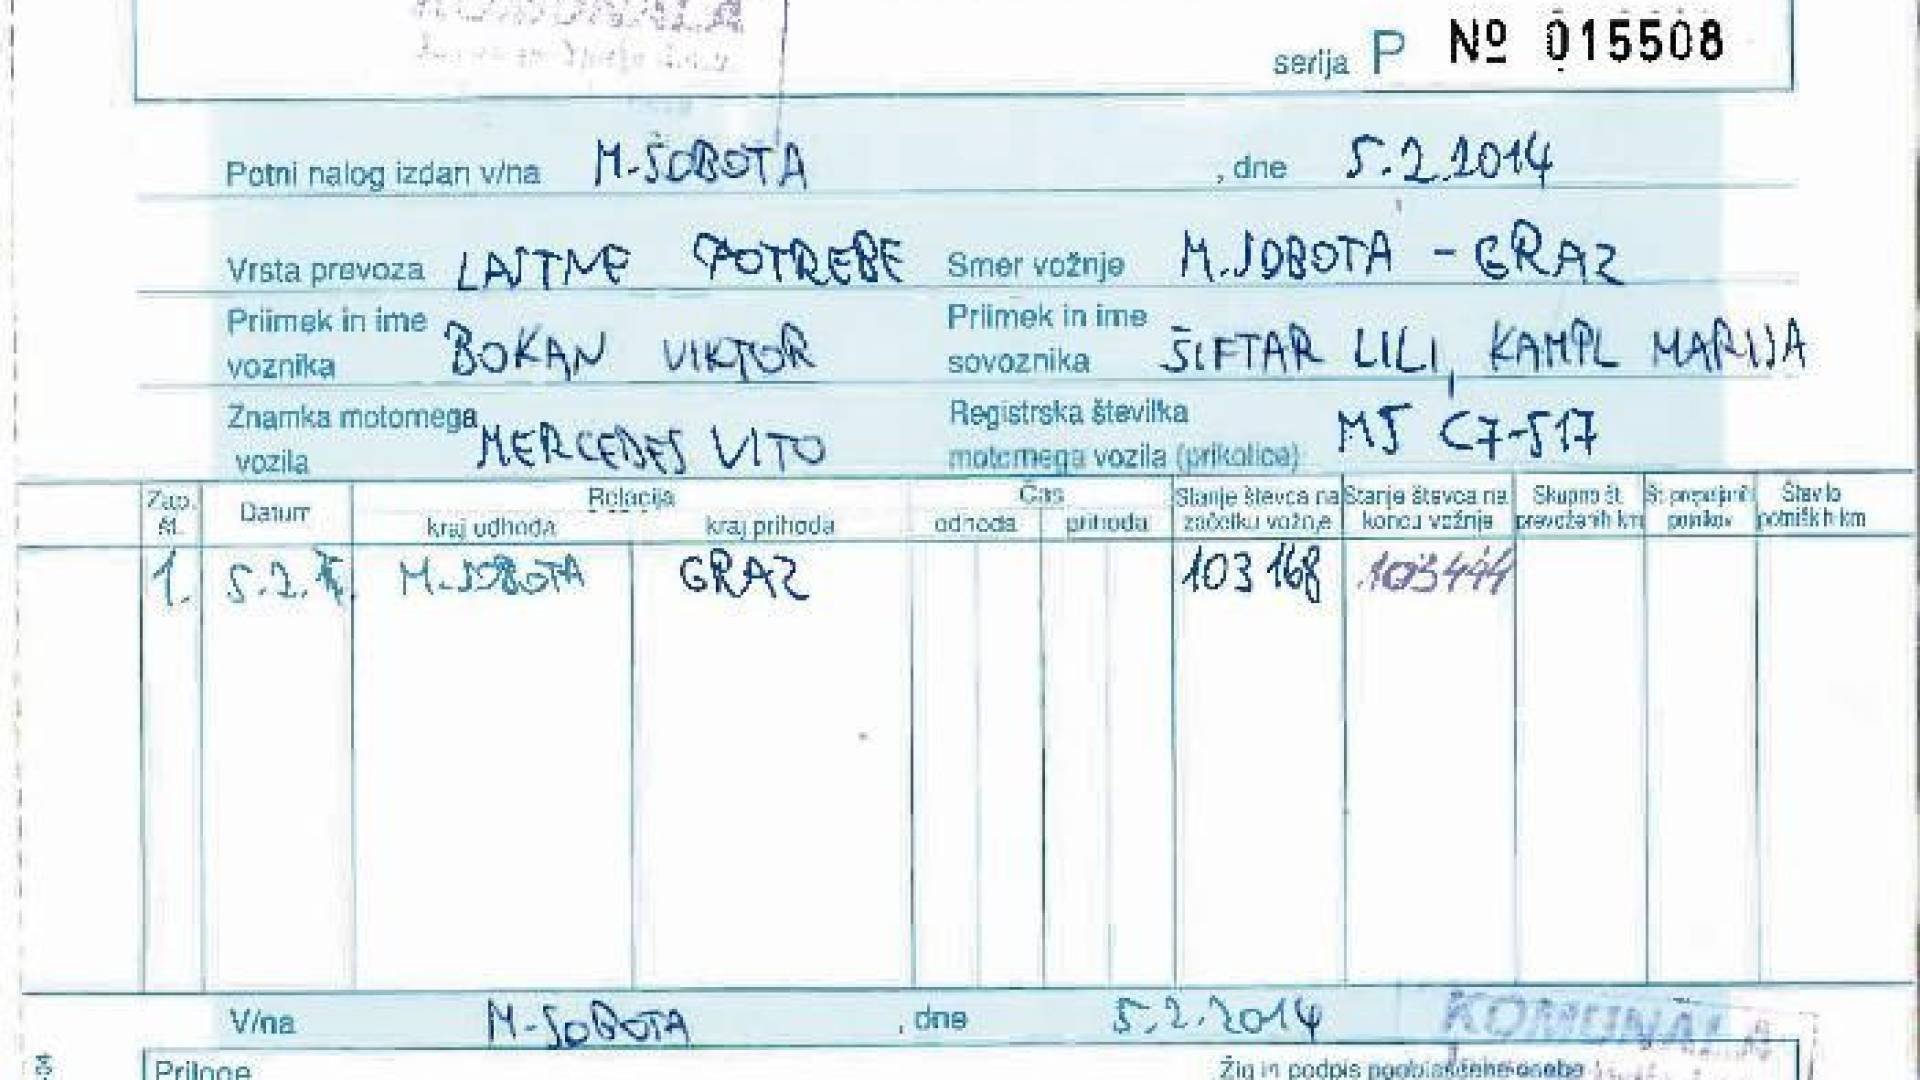 KOMUNALA
serija P Nº 015508
Potni nalog izdan v/na M-SOBOTA , dne 5.2.2014
Vrsta prevoza LASTNE POTREBE Smer vožnje M.SOBOTA - GRAZ
Priimek in ime voznika BOKAN VIKTOR Priimek in ime sovoznika ŠIFTAR LILI, KAMPL MARIJA
Znamka motornega vozila MERCEDES VITO Registrska številka motornega vozila (prikolice) MS C7-517
Zap. št. Datum Relacija Čas Stanje števca na začetku vožnje Stanje števca na koncu vožnje Skupno št. prevoženih km Št. prepeljanih potnikov Število potniških km
kraj odhoda kraj prihoda odhoda prihoda
1. 5.2. M-SOBOTA GRAZ 103 168 103444
V/na M-SOBOTA , dne 5.2.2014
KOMUNALA
Priloge Žig in podpis pooblaščene osebe